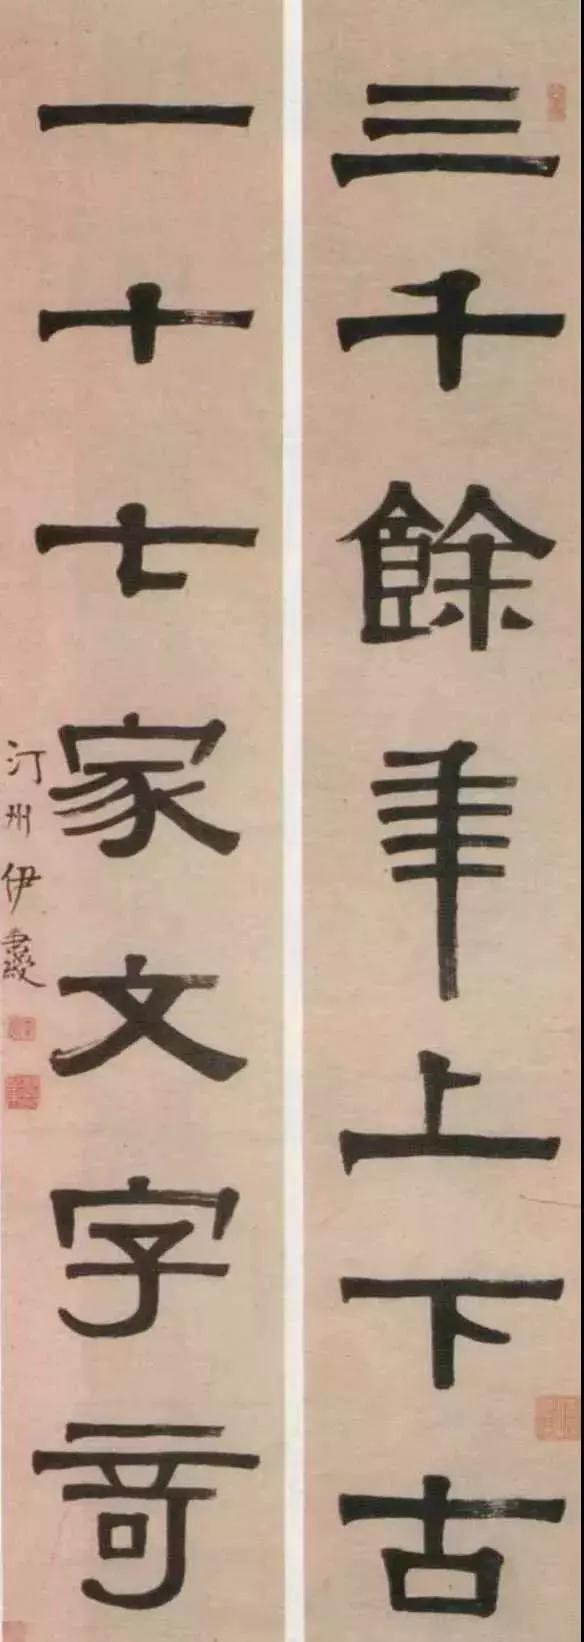 三千餘年上下古
一十七家文字奇
汀州伊秉綬